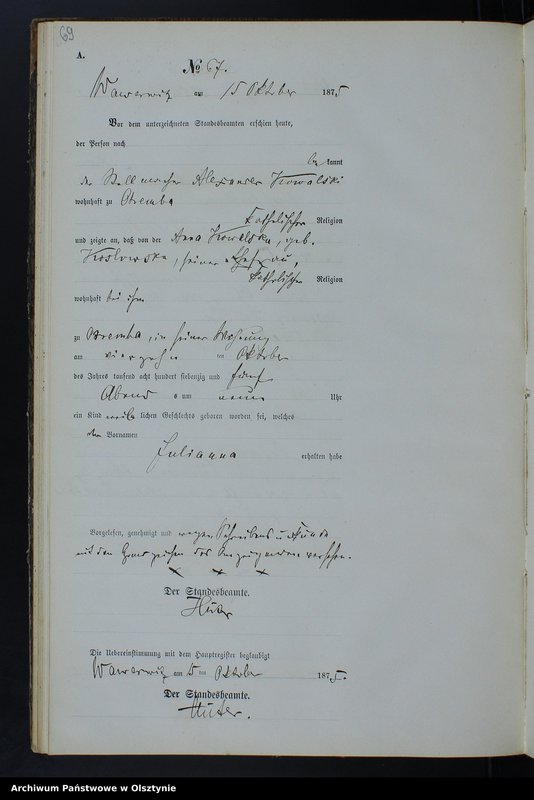 69
A.
No 67.
Wawerwitz am 15 Oktober 1875
Vor dem unterzeichneten Standesbeamten erschien heute,
der Person nach
be kannt
der Stellmacher Alexander Kowalski
wohnhaft zu Otremba
katholischer Religion
und zeigte an, daß von der Anna Kowalska, geb.
Koslowska, seiner Ehefrau,
katholischer Religion
wohnhaft bei ihm
zu Otremba, in seiner Wohnung
am vierzehn ten Oktober
des Jahres tausend acht hundert siebenzig und fünf
Abend s um neun Uhr
ein Kind weib lichen Geschlechts geboren worden sei, welches
den Vornamen
Julianna erhalten habe
Vorgelesen, genehmigt und wegen Schreibens u
mit den Handzeichen des Anzeigenden versehen.
x x x
Der Standesbeamte.
Huter
Die Uebereinstimmung mit dem Hauptregister beglaubigt
Wawerwitz am 15 ten Oktober 1875.
Der Standesbeamte.
Huter.
Archiwum Państwowe w Olsztynie